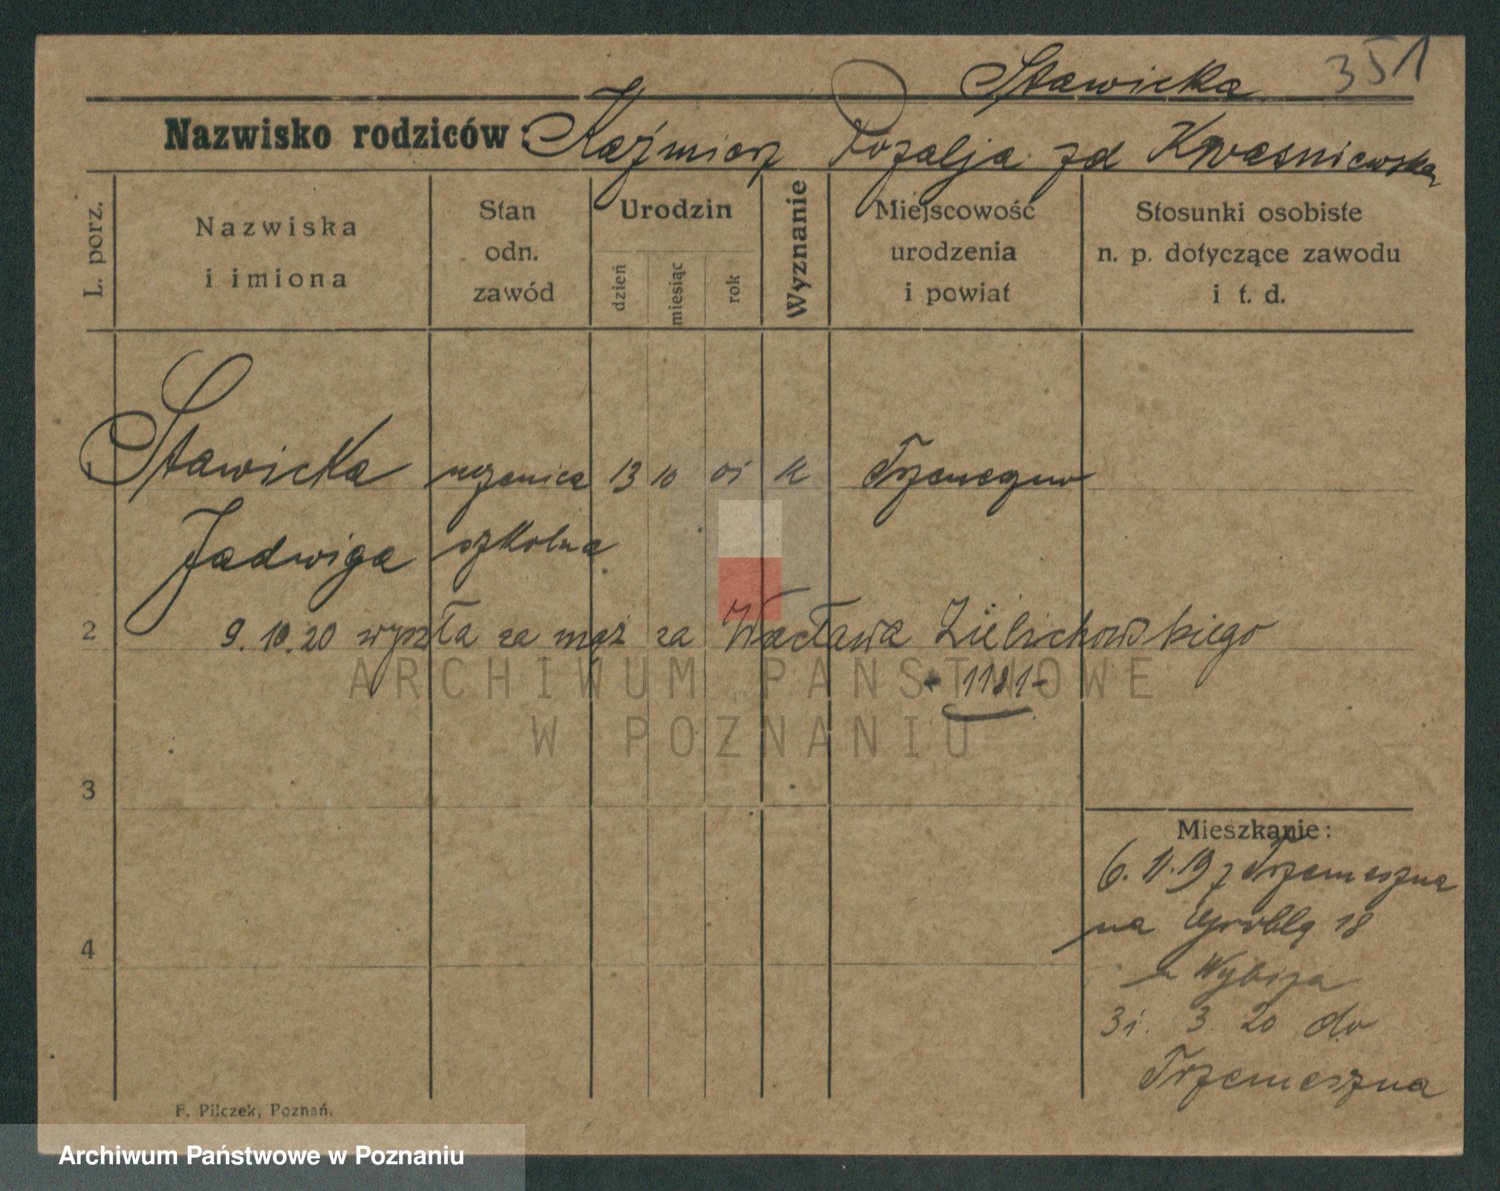 Stawicka 351
Nazwisko rodziców: Kaźmierz Rozalja zd Kwasniewska
L. porz.
Nazwiska
i imiona
Stan
odn.
zawód
Urodzin
dzień
miesiąc
rok
Wyznanie
Miejscowość
urodzenia
i powiat
Stosunki osobiste
n. p. dotyczące zawodu
i t. d.
1 Stawicka uczenica 13 10 01 k Trzemeszno
Jadwiga szkolna
2 9.10.20 wyszła za mąż za Wacława Zielichowskiego
- 1181 -
ARCHIWUM PAŃSTWOWE
W POZNANIU
3
Mieszkanie:
6.11.19 z Trzemeszna
na Groblą 18
4
31. 3. 20 do
Trzemeszna
F. Pilczek, Poznań.
Archiwum Państwowe w Poznaniu